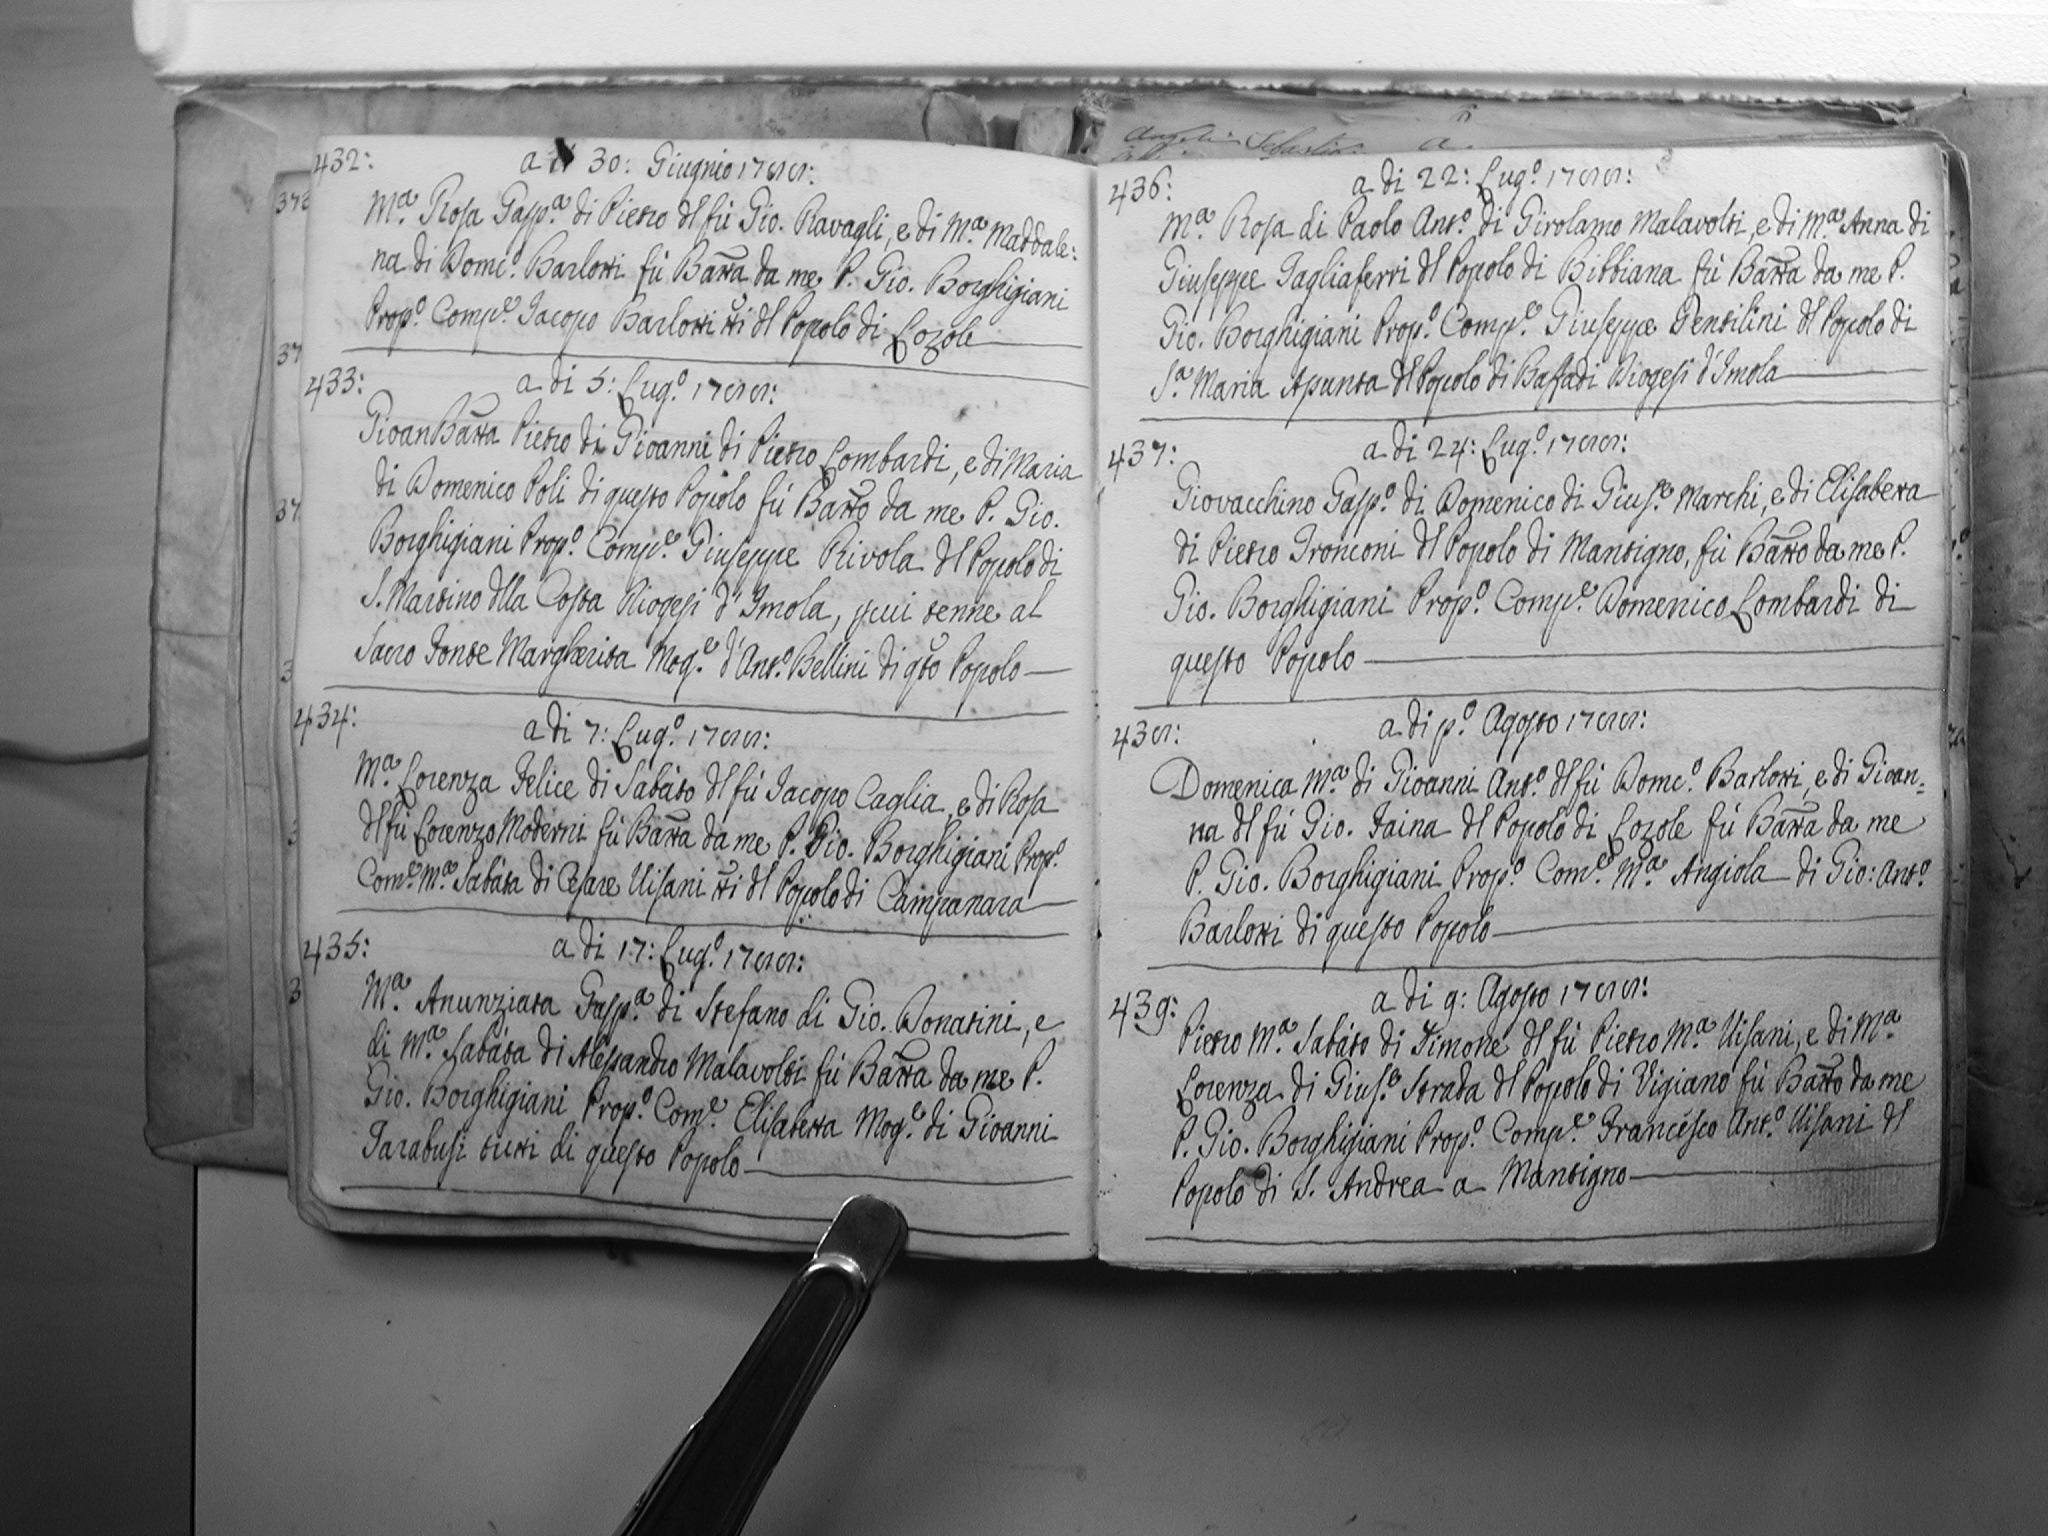 432:
a di 30: Giugnio 1788:
M.ª Rosa Gasp.ª di Pietro dl fú Gio. Ravagli, e di M.ª Maddale:
na di Domc.º Barlotti fú Batta da me P. Gio. Borghigiani
Prop.º Comp.e Jacopo Barlotti tti dl Popolo di Lozole
433:
a di 5: Lug.º 1788:
GioanBatta Pietro di Gioanni di Pietro Lombardi, e di Maria
di Domenico Poli di questo Popolo fú Batto da me P. Gio.
Borghigiani Prop.º Comp.e Giuseppe Rivola dl Popolo di
S. Martino dlla Costa Diogesi d'Imola, p cui tenne al
Sacro Fonte Margherita Mog.e d'Ant.º Bellini di qsto Popolo
434:
a di 7: Lug.º 1788:
M.ª Lorenza Felice di Sabáto dl fú Jacopo Caglia, e di Rosa
dl fú Lorenzo Moderni fú Batta da me P. Gio. Borghigiani Prop.º
Com.e M.ª Sabáta di Cesare Visani tti dl Popolo di Campanara
435:
a di 17: Lug.º 1788:
M.ª Anunziata Gasp.ª di Stefano di Gio. Donatini, e
di M.ª Sabáta di Alessandro Malavolti fú Batta da me P.
Gio. Borghigiani Prop.º Com.e Elisabetta Mog.e di Gioanni
Tarabusi tutti di questo Popolo
436:
a di 22: Lug.º 1788:
M.ª Rosa di Paolo Ant.º di Girolamo Malavolti, e di M.ª Anna di
Giuseppe Tagliaferri dl Popolo di Bibbiana fú Batta da me P.
Gio. Borghigiani Prop.º Comp.e Giuseppe Gentilini dl Popolo di
S.ª Maria Asunta dl Popolo di Baffadi Diogesi d'Imola
437:
a di 24: Lug.º 1788:
Giovacchino Gasp.º di Domenico di Gius.e Marchi, e di Elisabetta
di Pietro Tronconi dl Popolo di Mantigno, fú Batto da me P.
Gio. Borghigiani Prop.º Comp.e Domenico Lombardi di
questo Popolo
438:
a di p.º Agosto 1788:
Domenica M.ª di Gioanni Ant.º dl fú Domc.º Barlotti, e di Gioan=
na dl fú Gio. Faina dl Popolo di Lozole fú Batta da me
P. Gio. Borghigiani Prop.º Com.e M.ª Angiola di Gio: Ant.º
Barlotti di questo Popolo
439:
a di 9: Agosto 1788:
Pietro M.ª Sabáto di Simone dl fú Pietro M.ª Visani, e di M.ª
Lorenza di Gius.e Strada dl Popolo di Vigiano fú Batto da me
P. Gio. Borghigiani Prop.º Comp.e Francésco Ant.º Visani dl
Popolo di S. Andrea a Mantigno